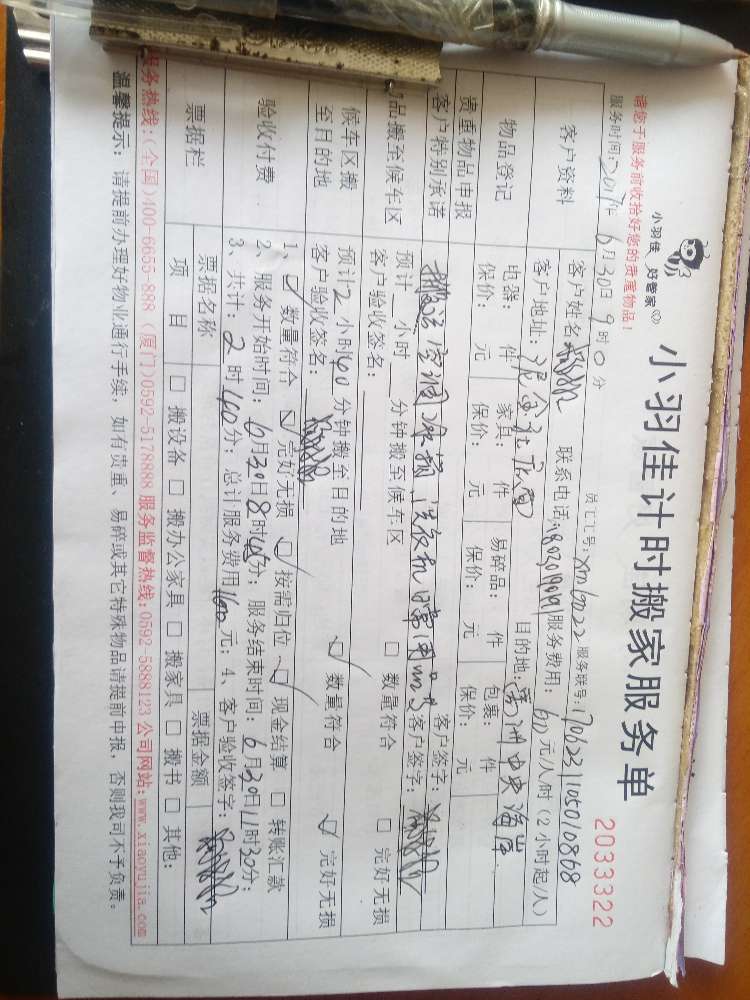 小羽佳 好管家
小羽佳计时搬家服务单
2033322
请您于服务前收拾好您的贵重物品!
服务时间:2017年6月30日9时0分 员工工号:xm 服务联号:706231105010868
客户资料 客户姓名: 联系电话: 服务费用: 元/人/时(2小时起/人)
客户地址: 目的地: 中央海岸
物品登记 电器: 件 家具: 件 易碎品: 件 包裹: 件
保价: 元 保价: 元 保价: 元 保价: 元
贵重物品申报 客户签字:
客户特别承诺 搬运 空调 洗衣机 日常用品 客户签字:
品搬至候车区 预计__小时__分钟搬至候车区 □ 数量符合 □ 完好无损
客户验收签名:
候车区搬至目的地 预计2小时40分钟搬至目的地 ☑ 数量符合 ☑ 完好无损
客户验收签名:
验收付费 1、☑ 数量符合 ☑ 完好无损 ☑ 按需归位 ☑ 现金结算 □ 转账汇款
2、服务开始时间:6月30日8时 分; 服务结束时间:6月30日11时30分;
3、共计:2时40分; 总计服务费用 元; 4、客户验收签字:
票据栏 票据名称 票据金额
项 目 □ 搬设备 □ 搬办公家具 □ 搬家具 □ 搬书 □ 其他:
服务热线:(全国)400-6655-888 (厦门)0592-5178888 服务监督热线:0592-5888123 公司网站:www.xiaoyujia.com
温馨提示: 请提前办理好物业通行手续,如有贵重、易碎或其它特殊物品请提前申报,否则我司不予负责。